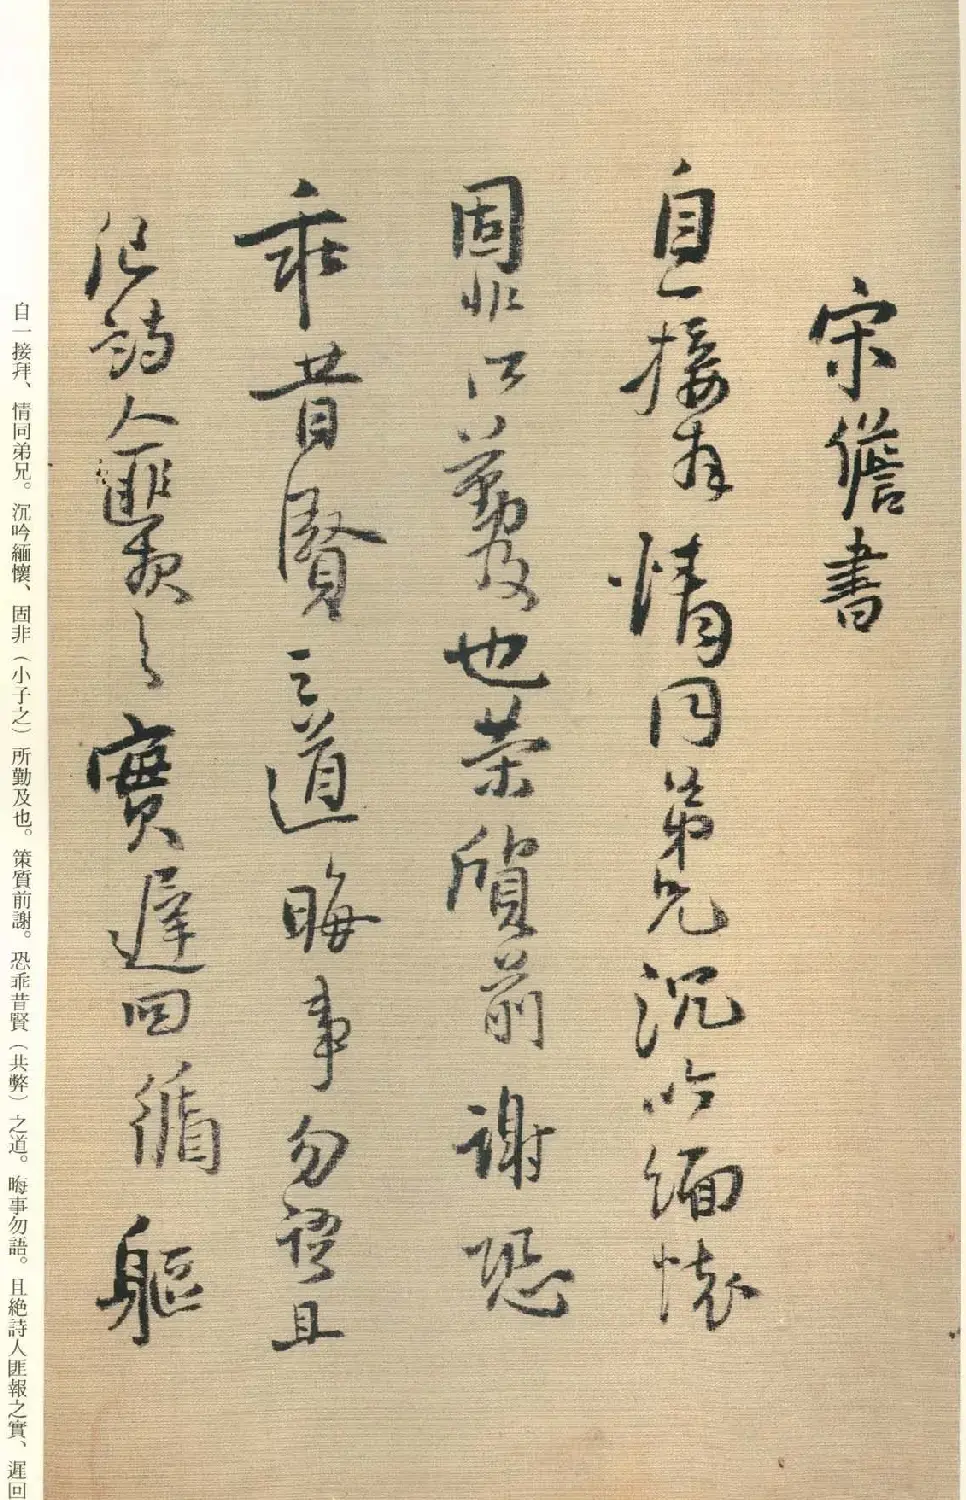 宋儋書
自一接拜情同弟兄沉吟緬懷
固非所勤及也策質前謝恐
乖昔賢之道晦事勿語且
絶詩人匪報之實遲回循軀
自一接拜、情同弟兄。沉吟緬懷、固非（小子之）所勤及也。策質前謝。恐乖昔賢（共弊）之道。晦事勿語。且絶詩人匪報之實、遲回